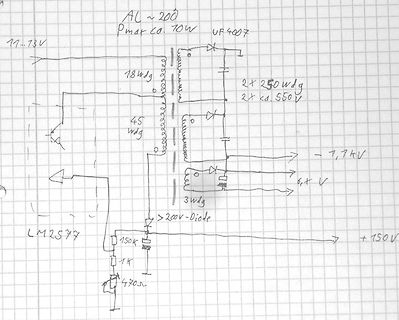 AL ~ 200
Pmax ca. 10W
UF4007
11-13V
18 Wdg
2 x 250 Wdg
2 x ca. 550V
45
Wdg
- 1,1kV
3 Wdg
>200V-Diode
LM2577
150K
+150V
1K
470Ω